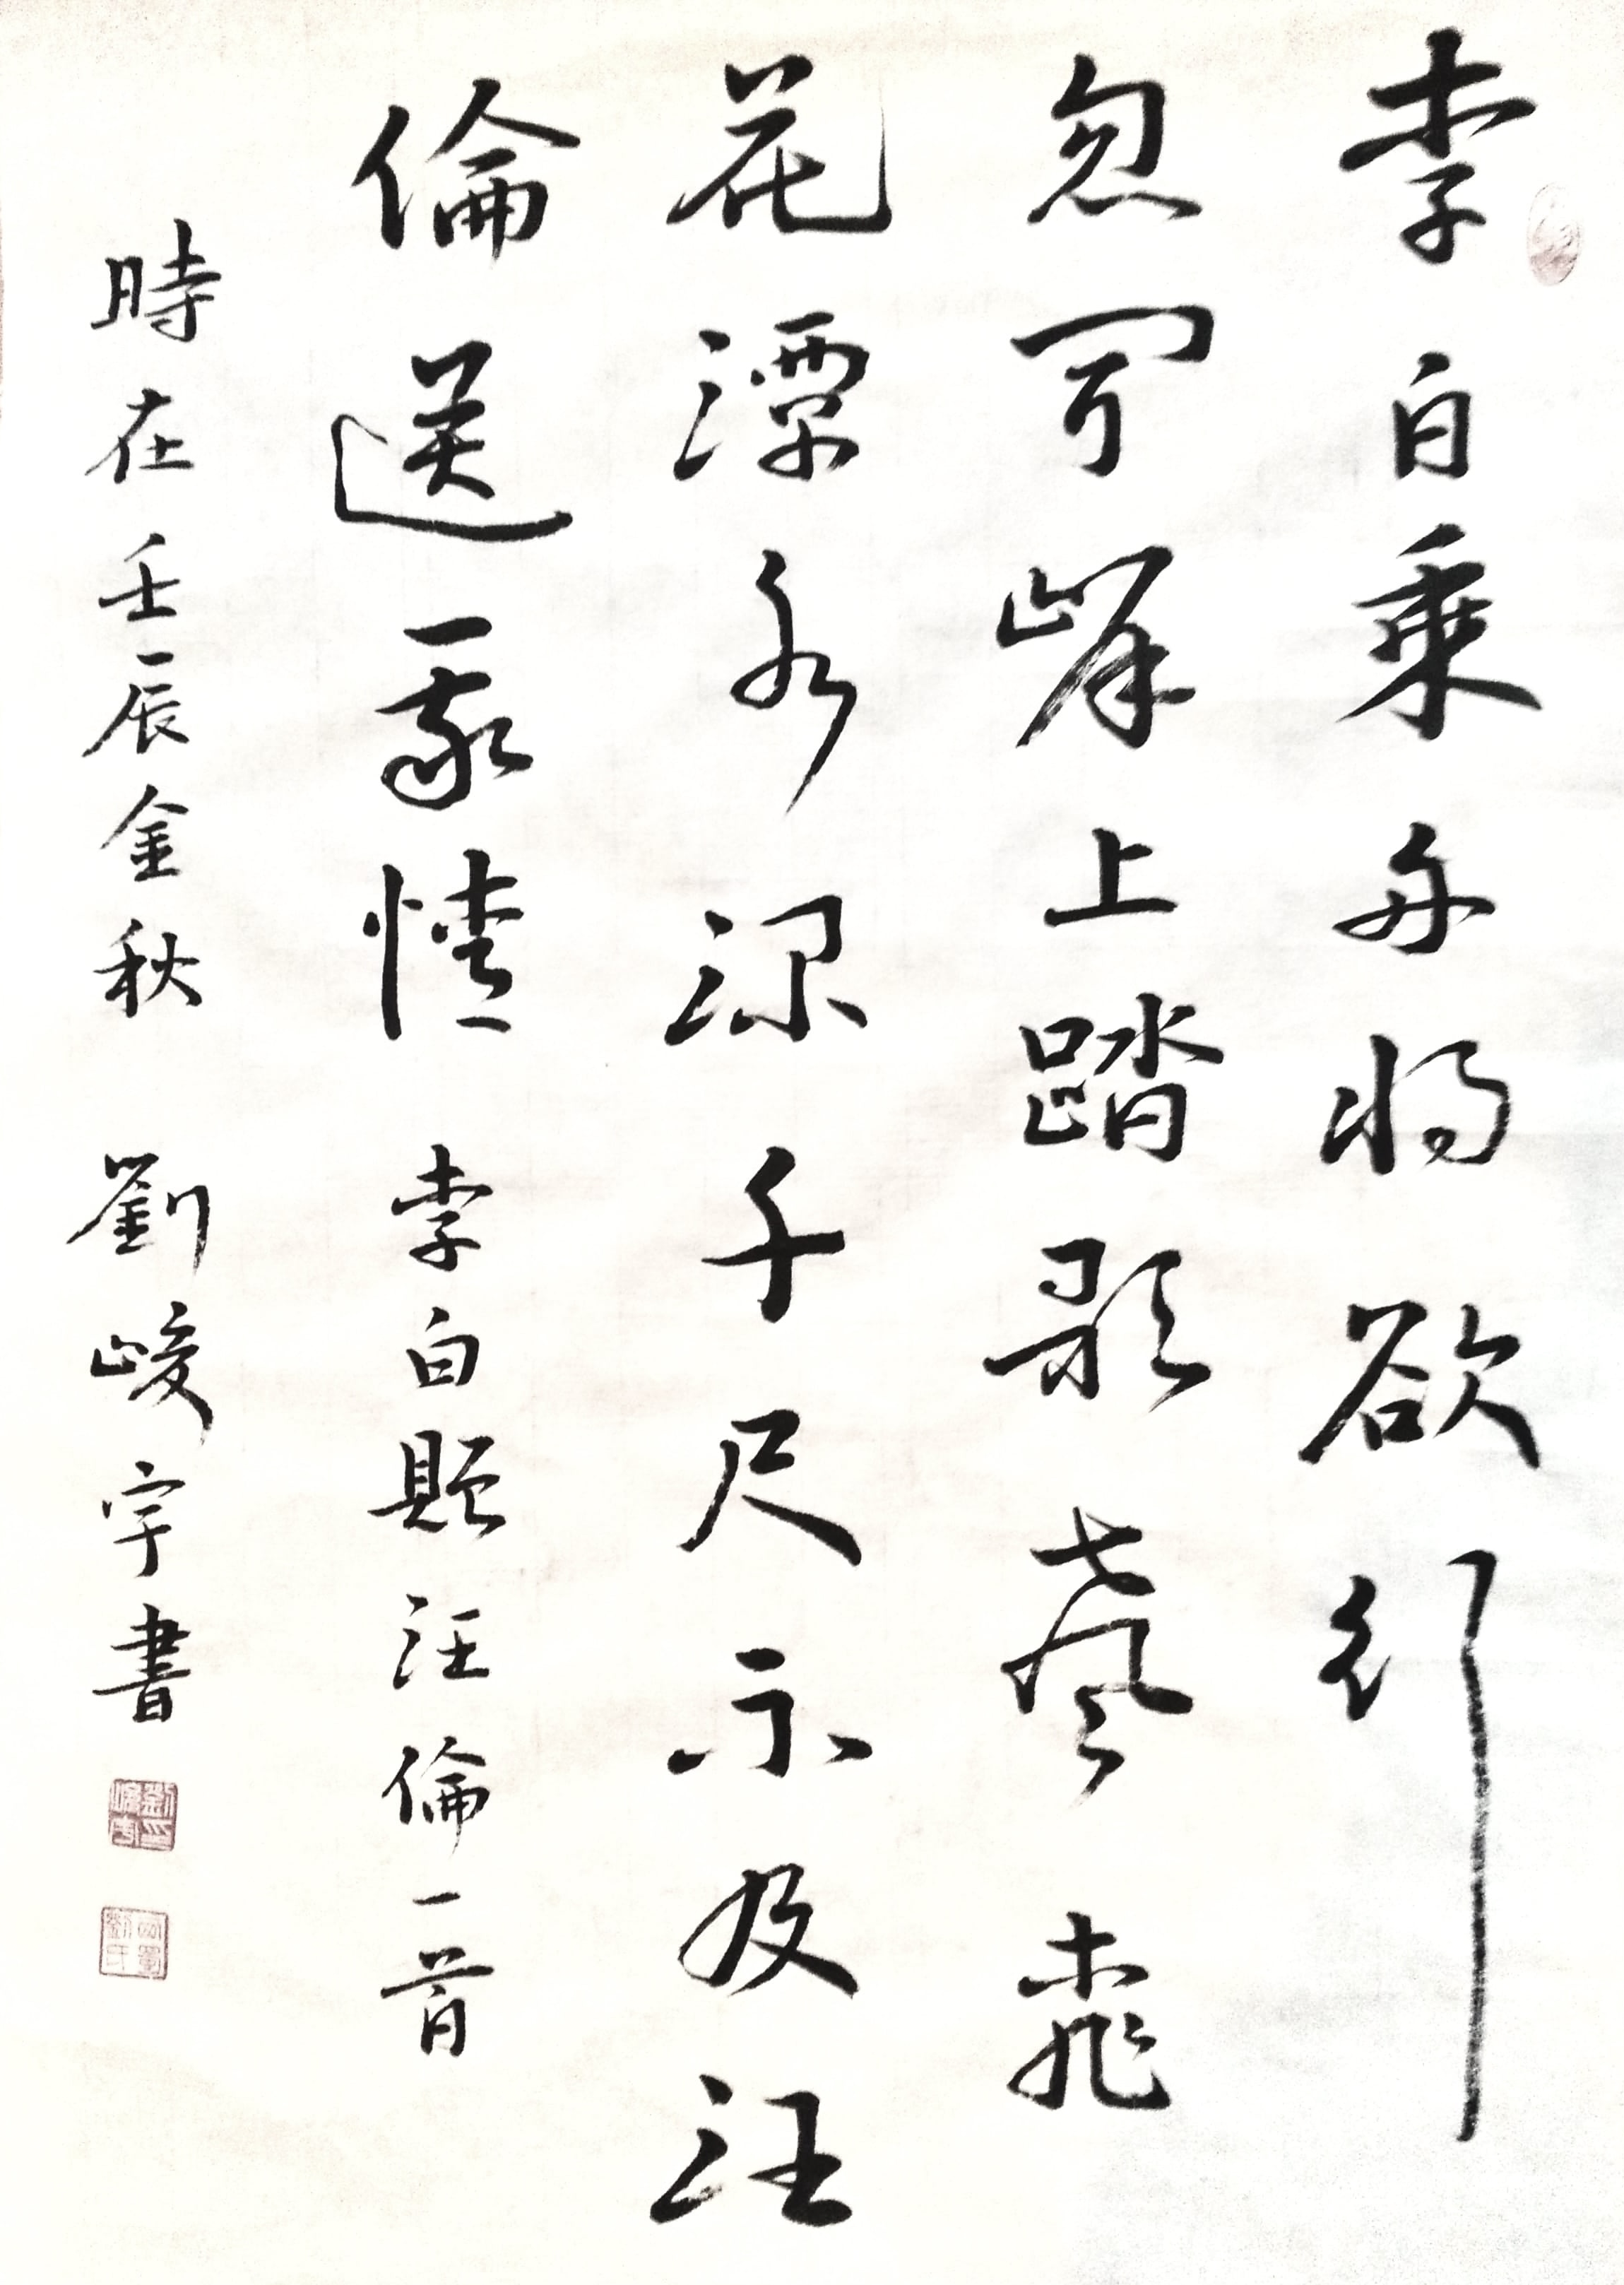 李白乘舟將欲行
忽聞岸上踏歌聲桃
花潭水深千尺不及汪
倫送我情 李白贈汪倫一首
時在壬辰金秋 劉峻宇書